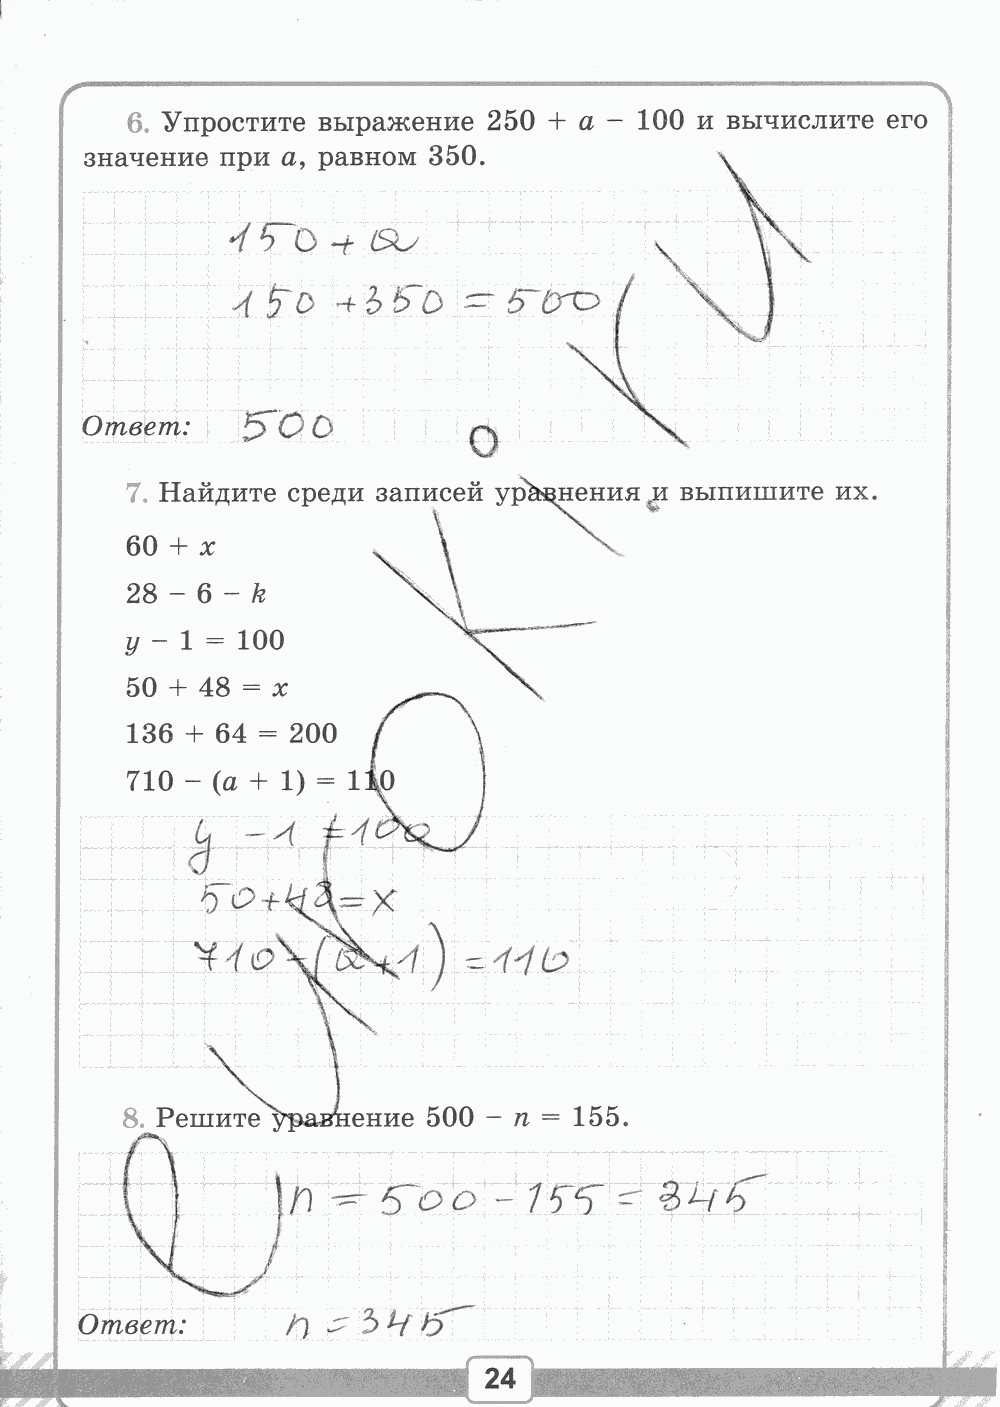 6. Упростите выражение 250 + a − 100 и вычислите его
значение при a, равном 350.
150 + a
150 + 350 = 500
Ответ: 500
7. Найдите среди записей уравнения и выпишите их.
60 + x
28 − 6 − k
y − 1 = 100
50 + 48 = x
136 + 64 = 200
710 − (a + 1) = 110
y − 1 = 100
50 + 48 = x
710 − (a + 1) = 110
8. Решите уравнение 500 − n = 155.
n = 500 − 155 = 345
Ответ: n = 345
24